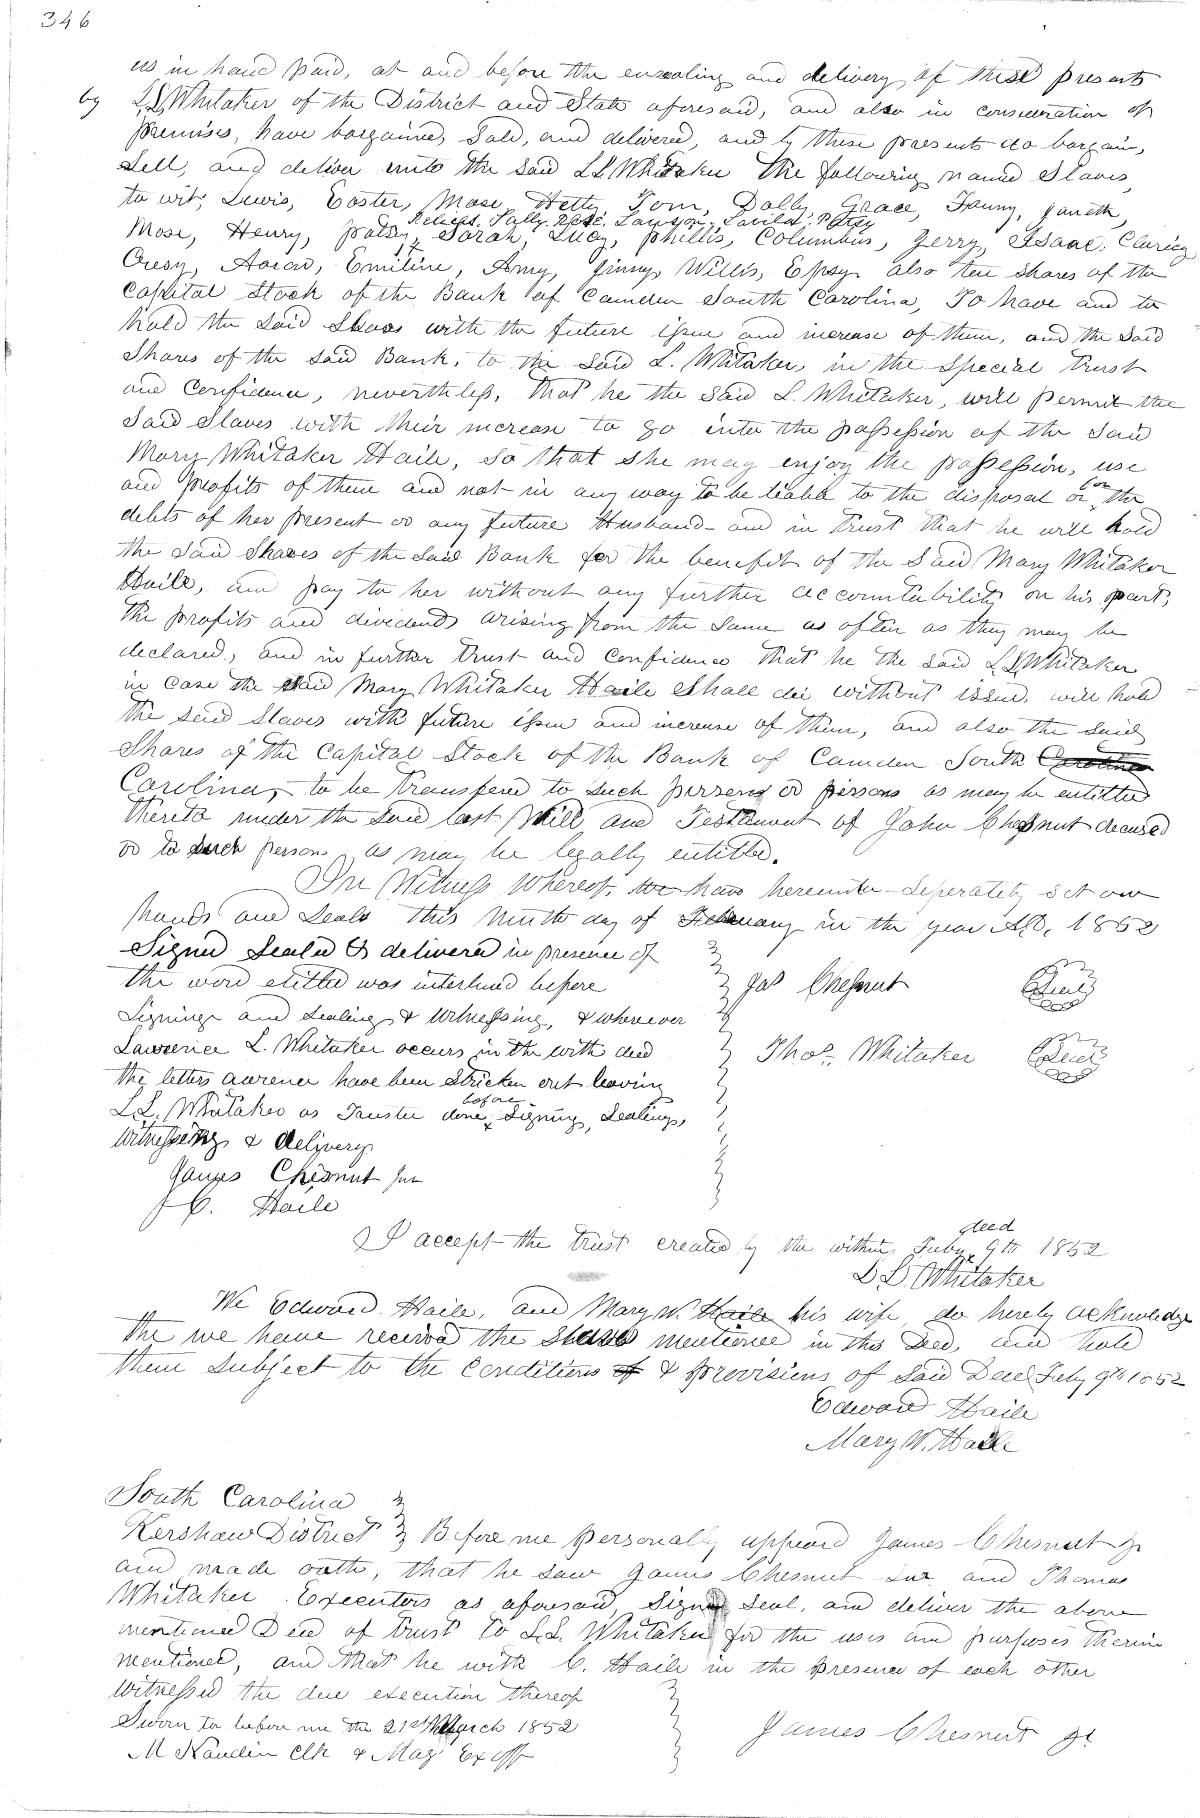 346
us in hand paid, at and before the ensealing and delivery of these presents
by L L Whitaker of the District and State aforesaid, and also in consideration of
premises, have bargained, Sold, and delivered, and by these presents do bargain,
Sell, and deliver unto the said L L Whitaker the following named Slaves,
to wit; Lewis, Easter, Mose, Hetty, Tom, Dolly, Grace, Fanny, Janeth,
Sally, Rose, Lawson, Patsy
Mose, Henry, Patsy, Sarah, Lucy, Phillis, Columbus, Jerry, Isaac,
Cresy, Aaron, Emiline, Amy, Jinny, Willis, Epsy also ten shares of the
Capital Stock of the Bank of Camden South Carolina, To have and to
hold the said Slaves with the future issue and increase of them, and the said
Shares of the said Bank, to the said L. Whitaker, in the special Trust
and Confidence, nevertheless, that he the said L. Whitaker, will permit the
Said Slaves with their increase to go into the possession of the said
Mary Whitaker Haile, so that she may enjoy the possession, use
and profits of them and not in any way to be liable to the disposal or for the
debts of her present or any future Husband and in trust that he will hold
the said Shares of the said Bank for the benefit of the said Mary Whitaker
Haile, and pay to her without any further accountability on his part,
the profits and dividends arising from the same as often as they may be
declared, and in further trust and confidence that he the said L L Whitaker
in case the said Mary Whitaker Haile shall die without issue, will hold
the said Slaves with future issue and increase of them, and also the said
Shares of the Capital Stock of the Bank of Camden South Carolina
Carolina, to be transfered to such person or persons as may be entitled
thereto under the said last Will and Testament of John Chesnut deceased
or to such persons as may be legally entitled.
In Witness Whereof, we have hereunto seperately set our
hands and seals this Ninth day of February in the year A.D. 1852
Signed Sealed & delivered in presence of
the word was interlined before
Signing and Sealing & witnessing, & wherever
Lawrence L. Whitaker occurs in the with deed
the letters awrence have been stricken out leaving
L.L. Whitaker as Trustee done before Signing, Sealing,
witnessing & delivery
James Chesnut Jur
C. Haile
Jas Chesnut Seal
Thos. Whitaker Seal
I accept the trust created by the within deed Feby 9th 1852
L L Whitaker
We Edward Haile, and Mary W. Haile his wife do hereby acknowledge
the we have received the slaves mentioned in this Deed, and hold
them subject to the conditions of & provisions of said Deed Feby 9th 1852
Edward Haile
Mary W. Haile
South Carolina
Kershaw District Before me personally appeared James Chesnut Jr
and made oath, that he saw James Chesnut Sur and Thomas
Whitaker Executors as aforesaid, Sign Seal, and deliver the above
mentioned Deed of trust to L.L. Whitaker for the uses and purposes therein
mentioned, and that he with C. Haile in the presence of each other
witnessed the due execution thereof
Sworn to before me the 21st March 1852
M Naudin Clk & Mag Ex off
James Chesnut Jr